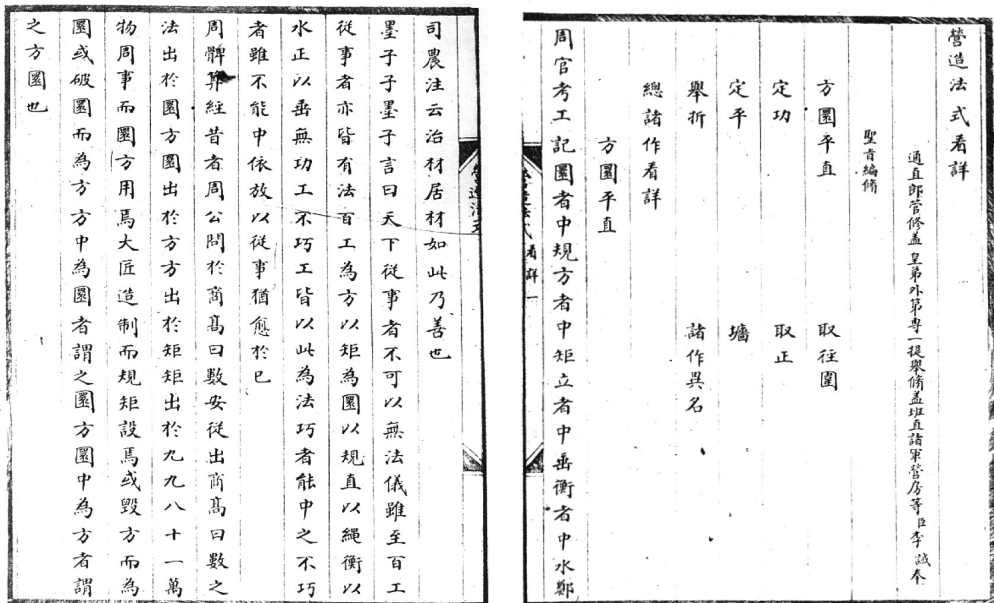 營造法式看詳
通直郎管修蓋 皇弟外第專一提舉修蓋班直諸軍營房等臣李誡奉
聖旨編修
方圜平直 取徑圍
定功 取正
定平 墻
舉折 諸作異名
總諸作看詳
方圜平直
周官考工記圜者中規方者中矩立者中垂衡者中水鄭
營造法式 看詳一
司農注云治材居材如此乃善也
墨子子墨子言曰天下從事者不可以無法儀雖至百工
從事者亦皆有法百工為方以矩為圜以規直以繩衡以
水正以垂無功工不巧工皆以此為法巧者能中之不巧
者雖不能中依放以從事猶愈於已
周髀筭經昔者周公問於商高曰數安從出商高曰數之
法出於圜方圜出於方方出於矩矩出於九九八十一萬
物周事而圜方用焉大匠造制而規矩設焉或毀方而為
圜或破圜而為方方中為圜者謂之圜方圜中為方者謂
之方圜也